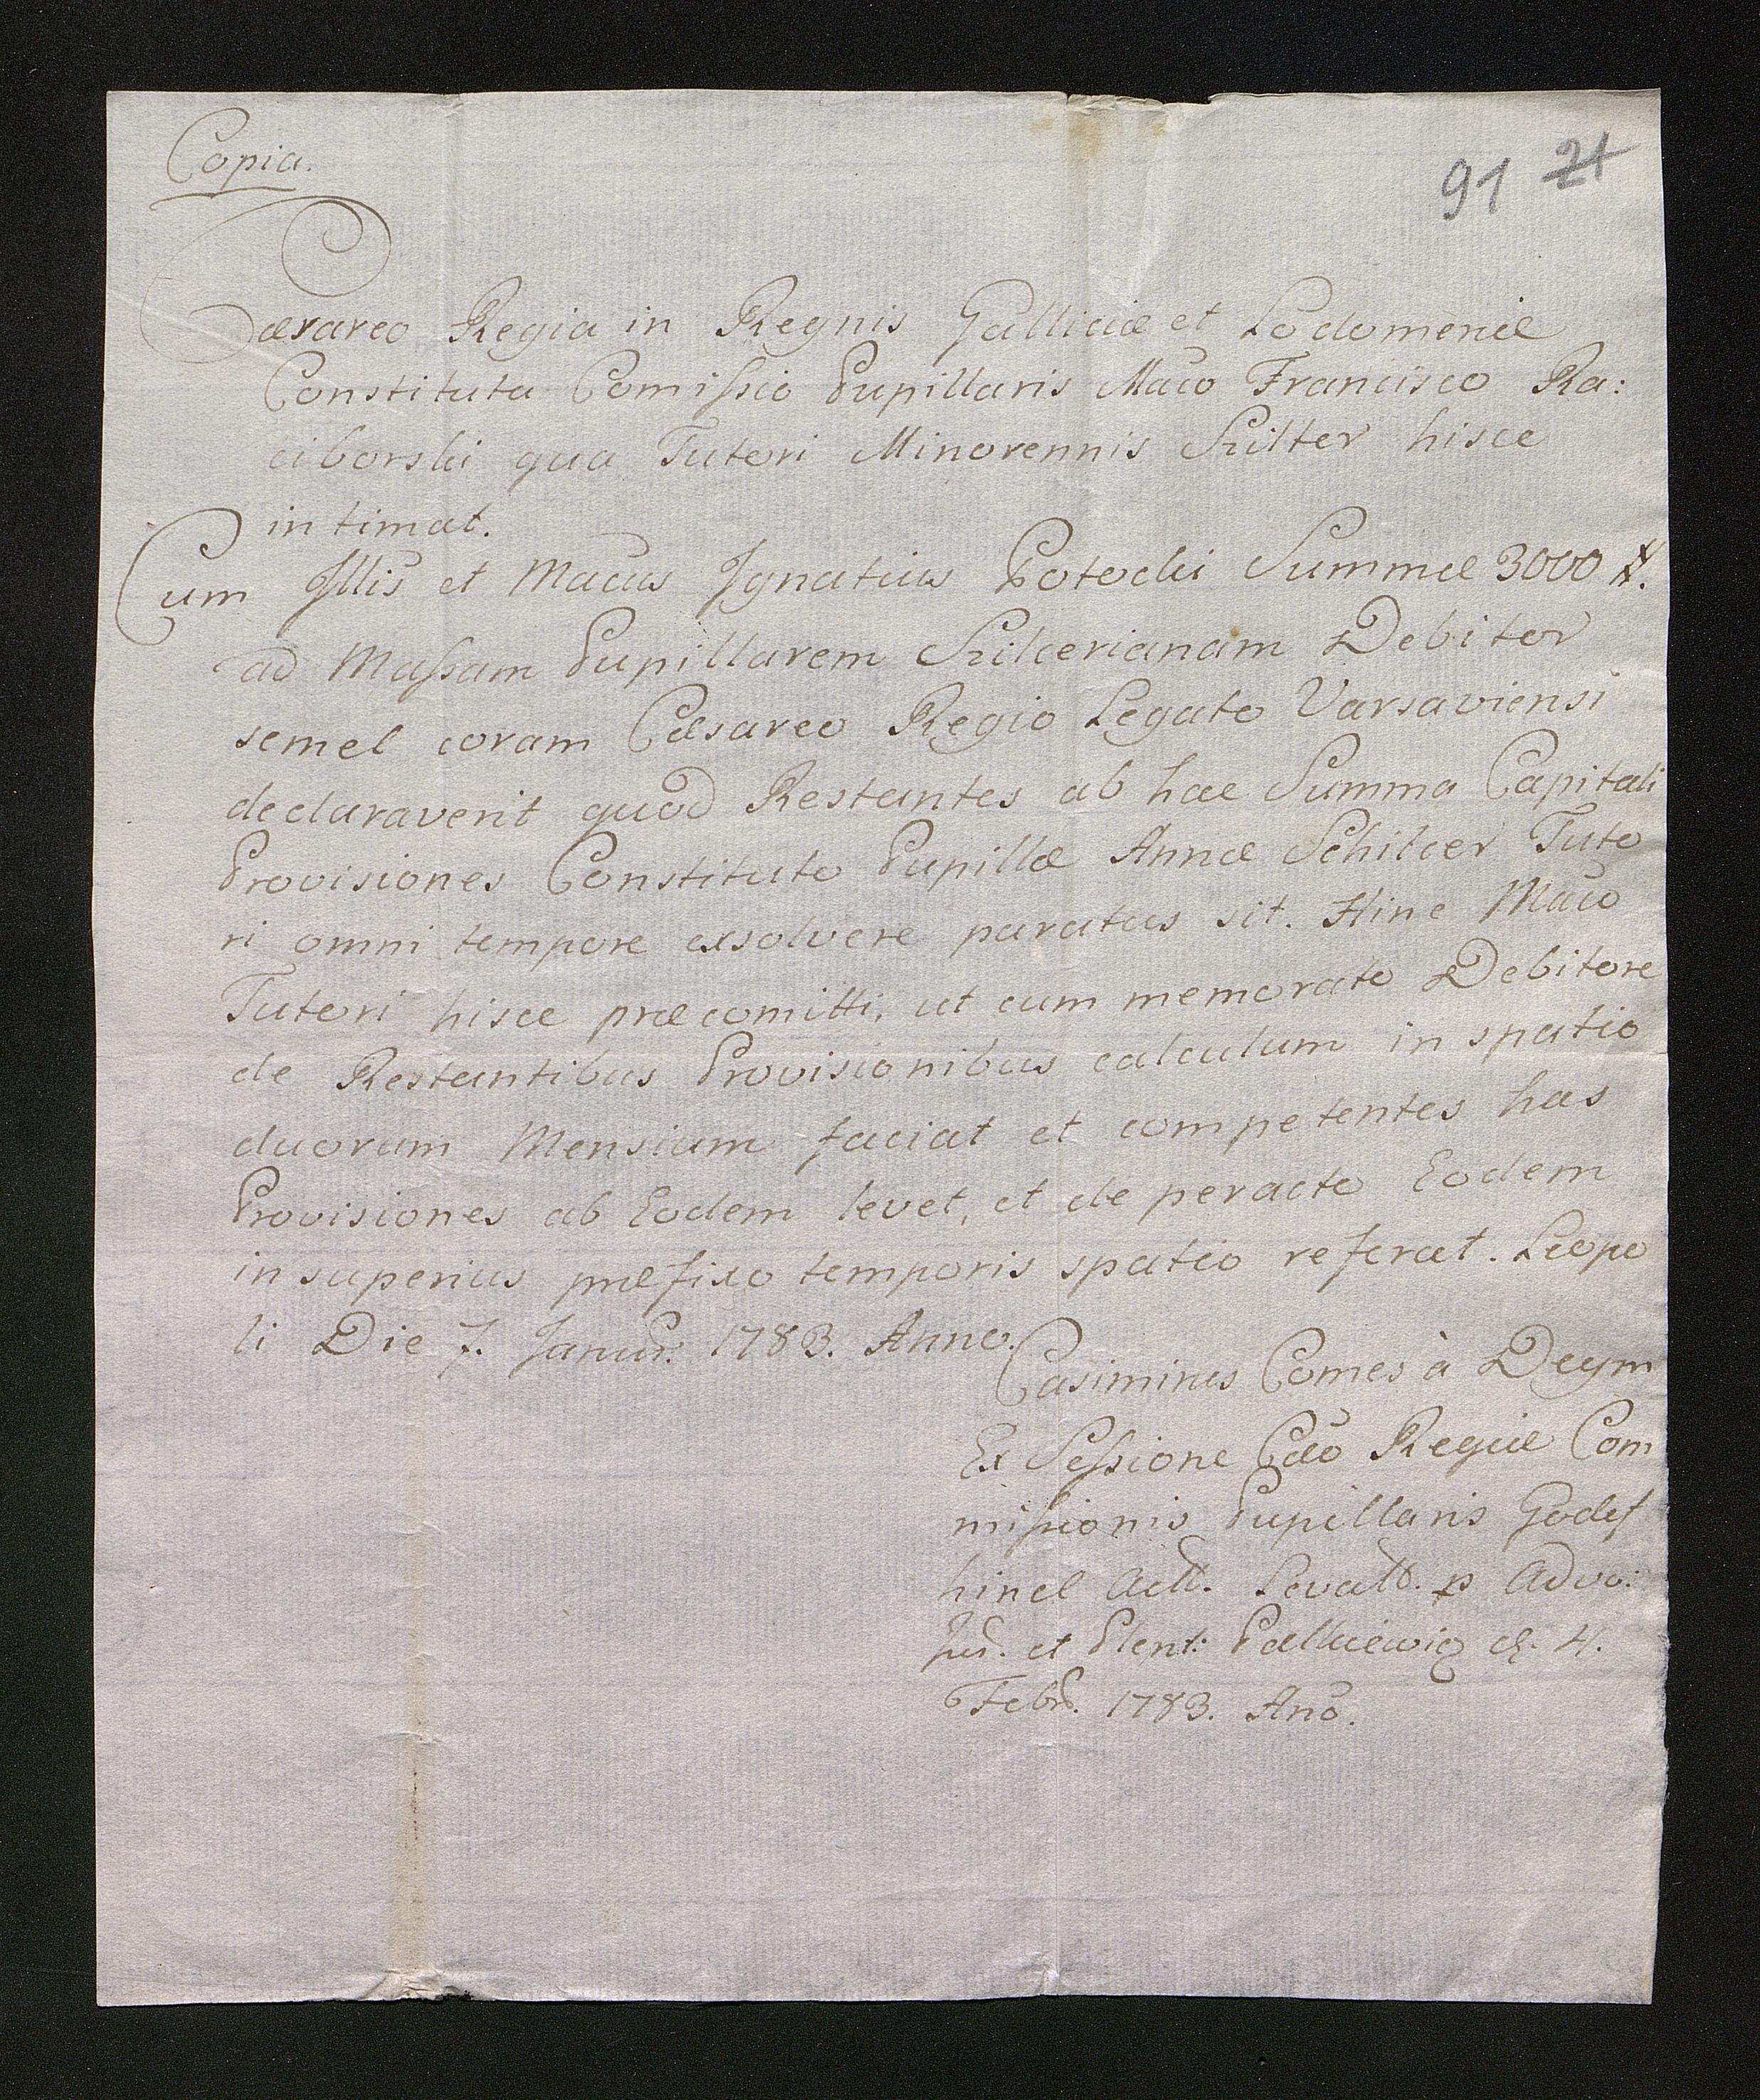 Copia.
91 21
Cæsareo Regia in Regnis Galliciæ et Lodomeriæ
Constituta Comissio Pupillaris Maco Francisco Ra:
ciborski qua Tutori Minorennis Szilter hisce
intimat.
Cum Illis et Macus Ignatius Potocki Summæ 3000 #.
ad Massam Pupillarem Szilcerianam Debitor
semel coram Cæsareo Regio Legato Varsaviensi
declaraverit quod Restantes ab hac Summa Capitali
Provisiones Constituto Pupillæ Annæ Schilcer Tuto
ri omni tempore exsolvere paratus sit. Hinc Maco
Tutori hisce præcomitti, ut cum memorato Debitore
de Restantibus Provisionibus calculum in spatio
duorum Mensium faciat et competentes has
Provisiones ab Eodem levet, et de peracto Eodem
in superius præfixo temporis spatio referat. Leopo
li Die 7. Januar. 1783. Anno.
Casimirus Comes à Deym
Ex Sessione Cæo Regiæ Com
missionis Pupillaris Godef
hinel p Advo:
et Plent: 4.
Febr. 1783. Ano.